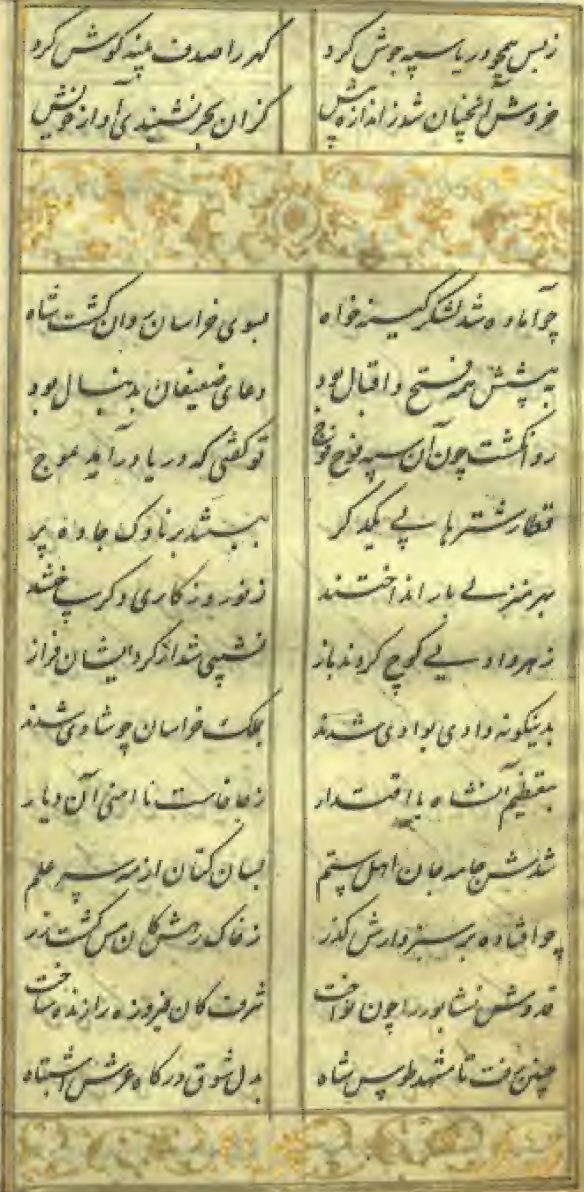 ز بس همچو دریا سپه جوش کرد گهر را صدف پنبه گوش کرد
خروش آنچنان شد ز اندازه بیش کزان کر نشنیدی آواز خویش
چو آماده شد لشکر کینه خواه بسوی خراسان روان گشت شاه
به پیشش همه فتح و اقبال بود دعای ضعیفان بدنبال بود
روان گشت چون آن سپه فوج فوج تو گفتی که دریا درآید بموج
قطار شترها پی یکدگر جاده پر
بهر منزلی بار انداختند ز
ز هر وادیی کوچ کردند باز نشیبی شد از گرد ایشان فراز
بدینگونه وادی بوادی شدند بملک خراسان چو شادی شدند
بتعظیم آن شاه با اقتدار ز جا خاست ناامنی آن دیار
شدش جامه جان اهل ستم بسان کتان از مه سر علم
چو افتاده بر سبزوارش گذر ز خاک رهش کان مس گشت زر
قدومش نشابور را چون نواخت شرف کان فیروزه را زنده ساخت
چنین رفت تا مشهد طوس شاه بدل شوق درگاه عرش اشتباه